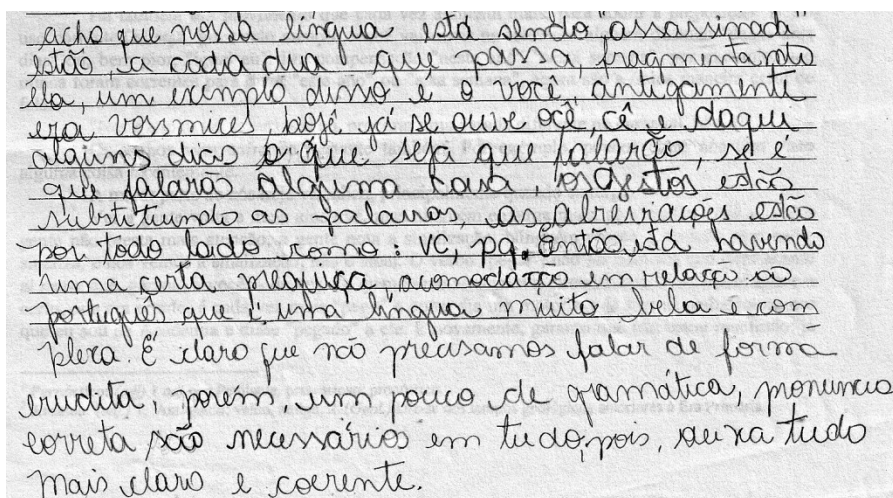 acho que nossa língua está sendo "assassinada"
estão a cada dia que passa fragmentando
ela, um exemplo disso é o você, antigamente
era vossmices, hoje já se ouve ocê, cê e daqui
alguns dias o que será que falarão, se é
que falará alguma coisa, os gestos estão
substituindo as palavras, as abreviações estão
por todo lado como: vc, pq. Então, está havendo
uma certa preguiça acomodação em relação ao
português que é uma língua muito bela e com
plexa. É claro que não precisamos falar de forma
erudita, porem um pouco de gramática, pronuncia
correta são necessários em tudo, pois, deixa tudo
mais claro e coerente.